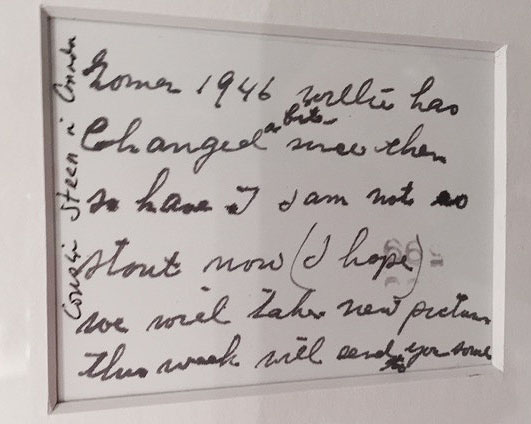 1946 Willie has
Changed a bit since then
so have I I am not so
stout now (I hope)
we will take new picture
this week will send you some